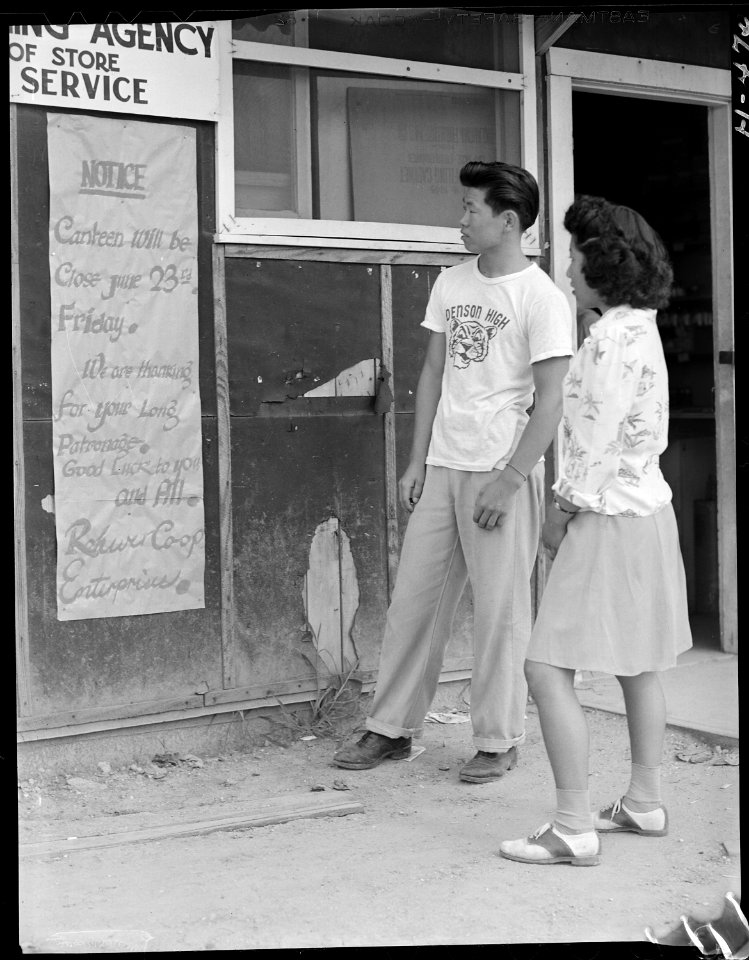 ING AGENCY
OF STORE
SERVICE
NOTICE
Canteen Will be
Close June 23rd
Friday.
We are thanking
for your Long
Patronage.
Good Luck to you
and All.
Rohwer Coop
Enterprises.
DENSON HIGH